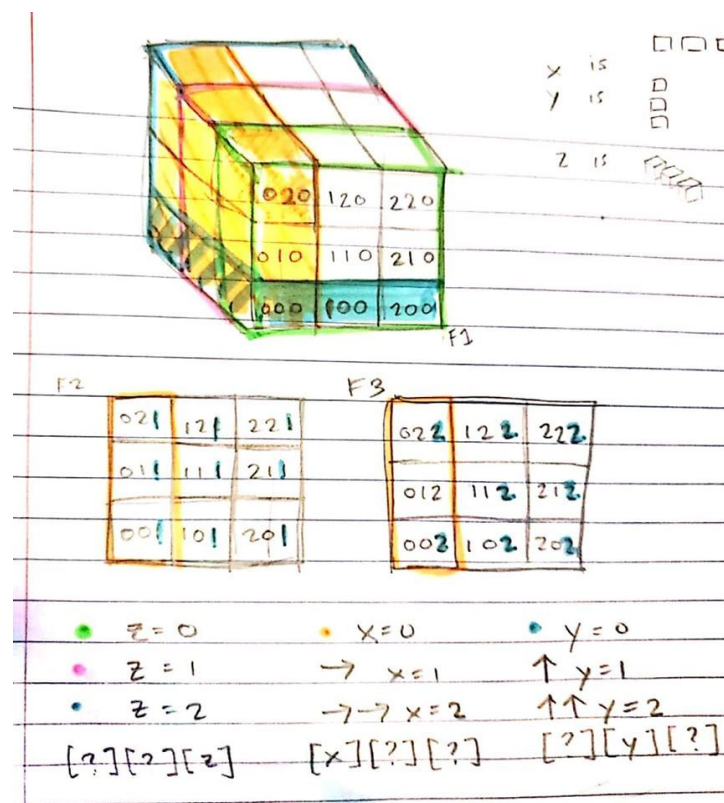 x is
y is
z is
020 120 220
010 110 210
000 100 200
F1
F2
021 121 221
011 111 211
001 101 201
F3
022 122 222
012 112 212
002 102 202
z=0 x=0 y=0
z=1 → x=1 ↑ y=1
z=2 →→ x=2 ↑↑ y=2
[?][?][z] [x][?][?] [?][y][?]